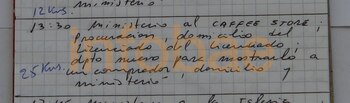 12 Kms. ministerio
13:30 ministerio al CAFFEE STORE;
Procuración, domicilio del
Licenciado del Licenciado;
dpto nuevo para mostrarlo a
25 Kms. un comprador, domicilio y
ministerio